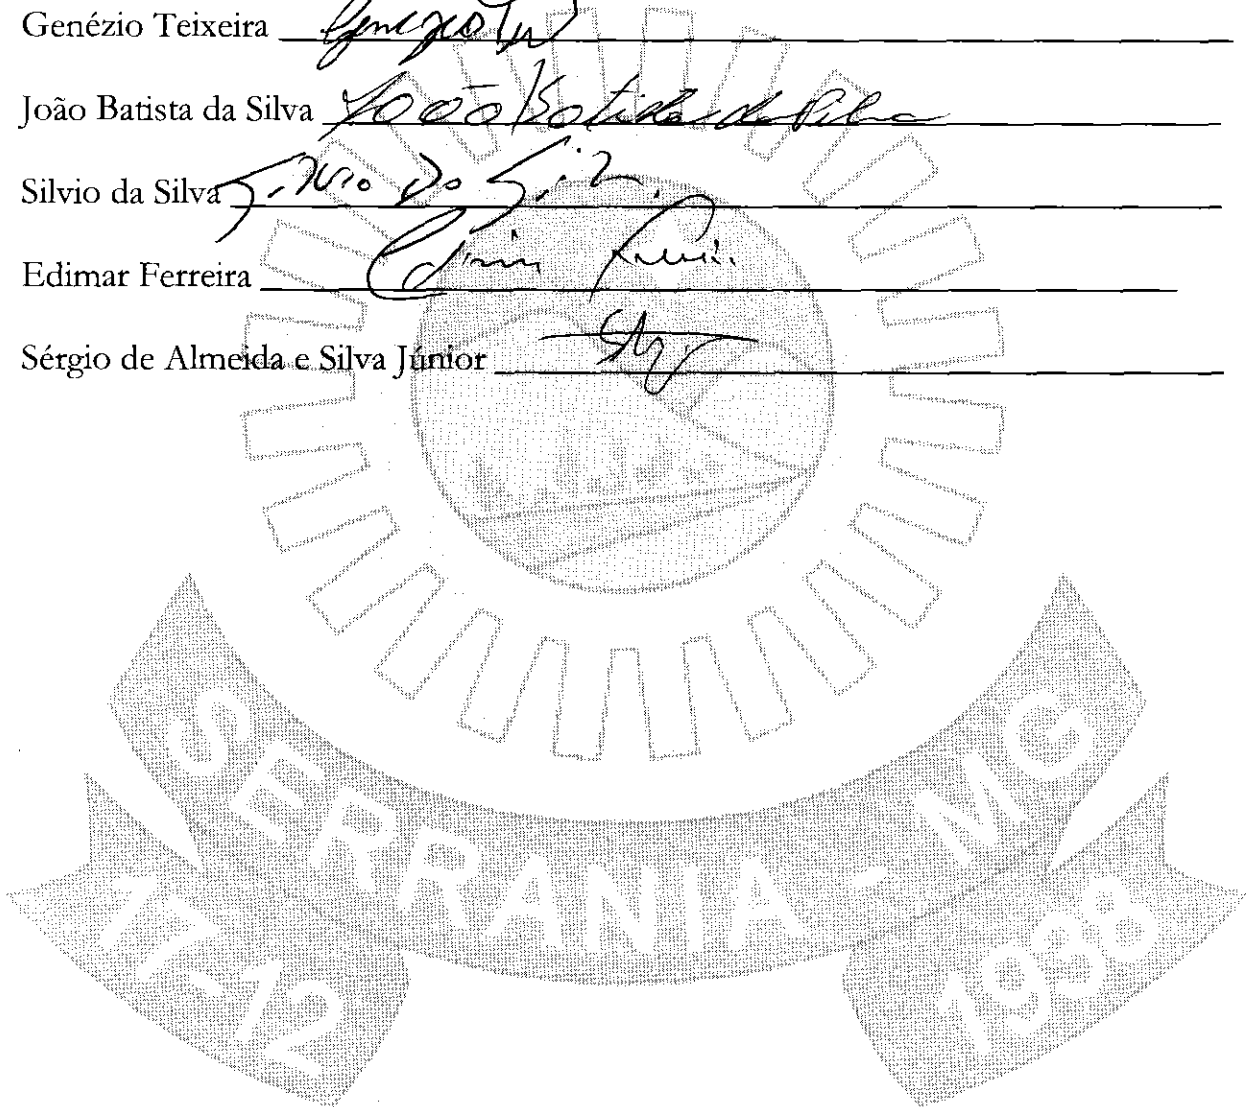 Genézio Teixeira
João Batista da Silva João Batista da Silva
Silvio da Silva Silvio da Silva
Edimar Ferreira
Sérgio de Almeida e Silva Júnior
SERRANIA - MG
17-12 1938